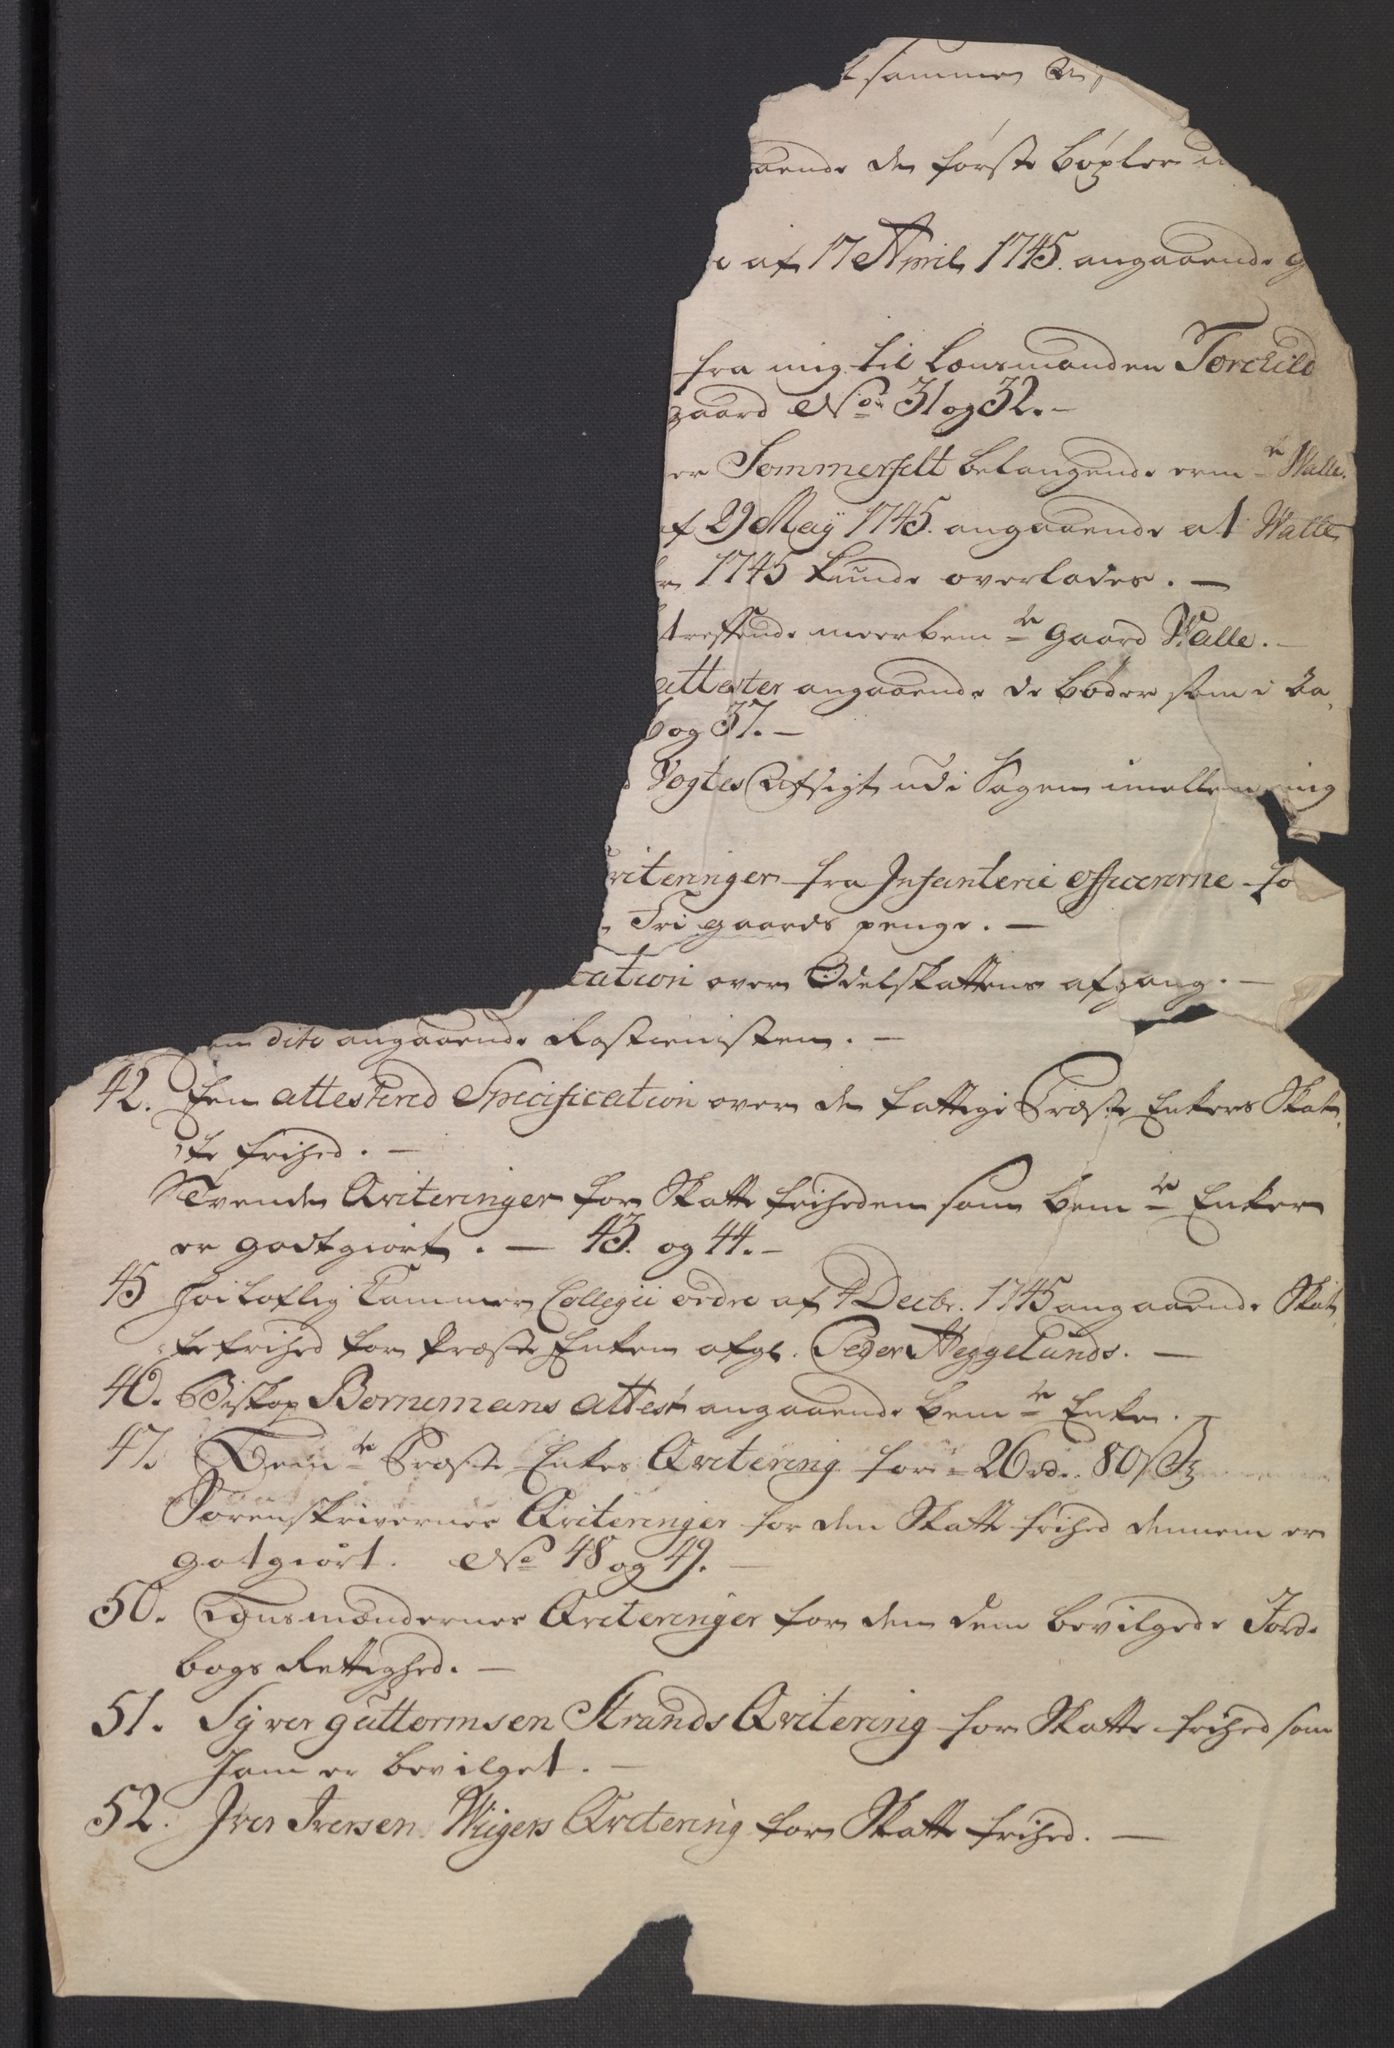 sammen
aaende de første böxler
af 17 April 1745. angaaende
fra mig til Lensmanden Torchild
gaard No 31 og 32. —
er Sommerfelt belangende erm-te Walle.
af 29 Maÿ 1745. angaaende at Walle
1745 kunde overlades. —
treffende meerbem-te gaard Walle. —
attester angaaende de bøder som i
og 37. —
Vogtes Afsigt udi Sagen imellem mig
viteringer fra Infanterie officererne fo
Fri gaards penge. —
cation over Odelskattens afgang. —
en dito angaaende Rostienisten. —
42. Een attestered Specification over de fattige Præste Enkers Skat,
te frihed. —
Tvende Qviteringer for Skatte friheden som bem-te Enker
er godtgiort. — 43. og 44. —
45 Høiloflig Cammer Collegii ordre af 4 Decbr. 1745 angaaende Skat,
tefrihed for Præste Enken afgl. Peder Heggelunds. —
46. Biskop Bornemans attest angaaende bem-te Enke.
47. Bem-te Præste Enkes Qvitering for 26 rd. 80 s
Sorenskrivernes Qviteringer for den Skatte frihed dennem er
gotgiört. No 48 og 49. —
50. Lensmændernes Qviteringer for den dem bevilgede Jorde
bogs Rettighed. —
51. Syver guttormsen Strands Qvitering for Skatte frihed som
ham er bevilget. —
52. Iver Iversen Wiigers Qvitering for Skatte frihed. —